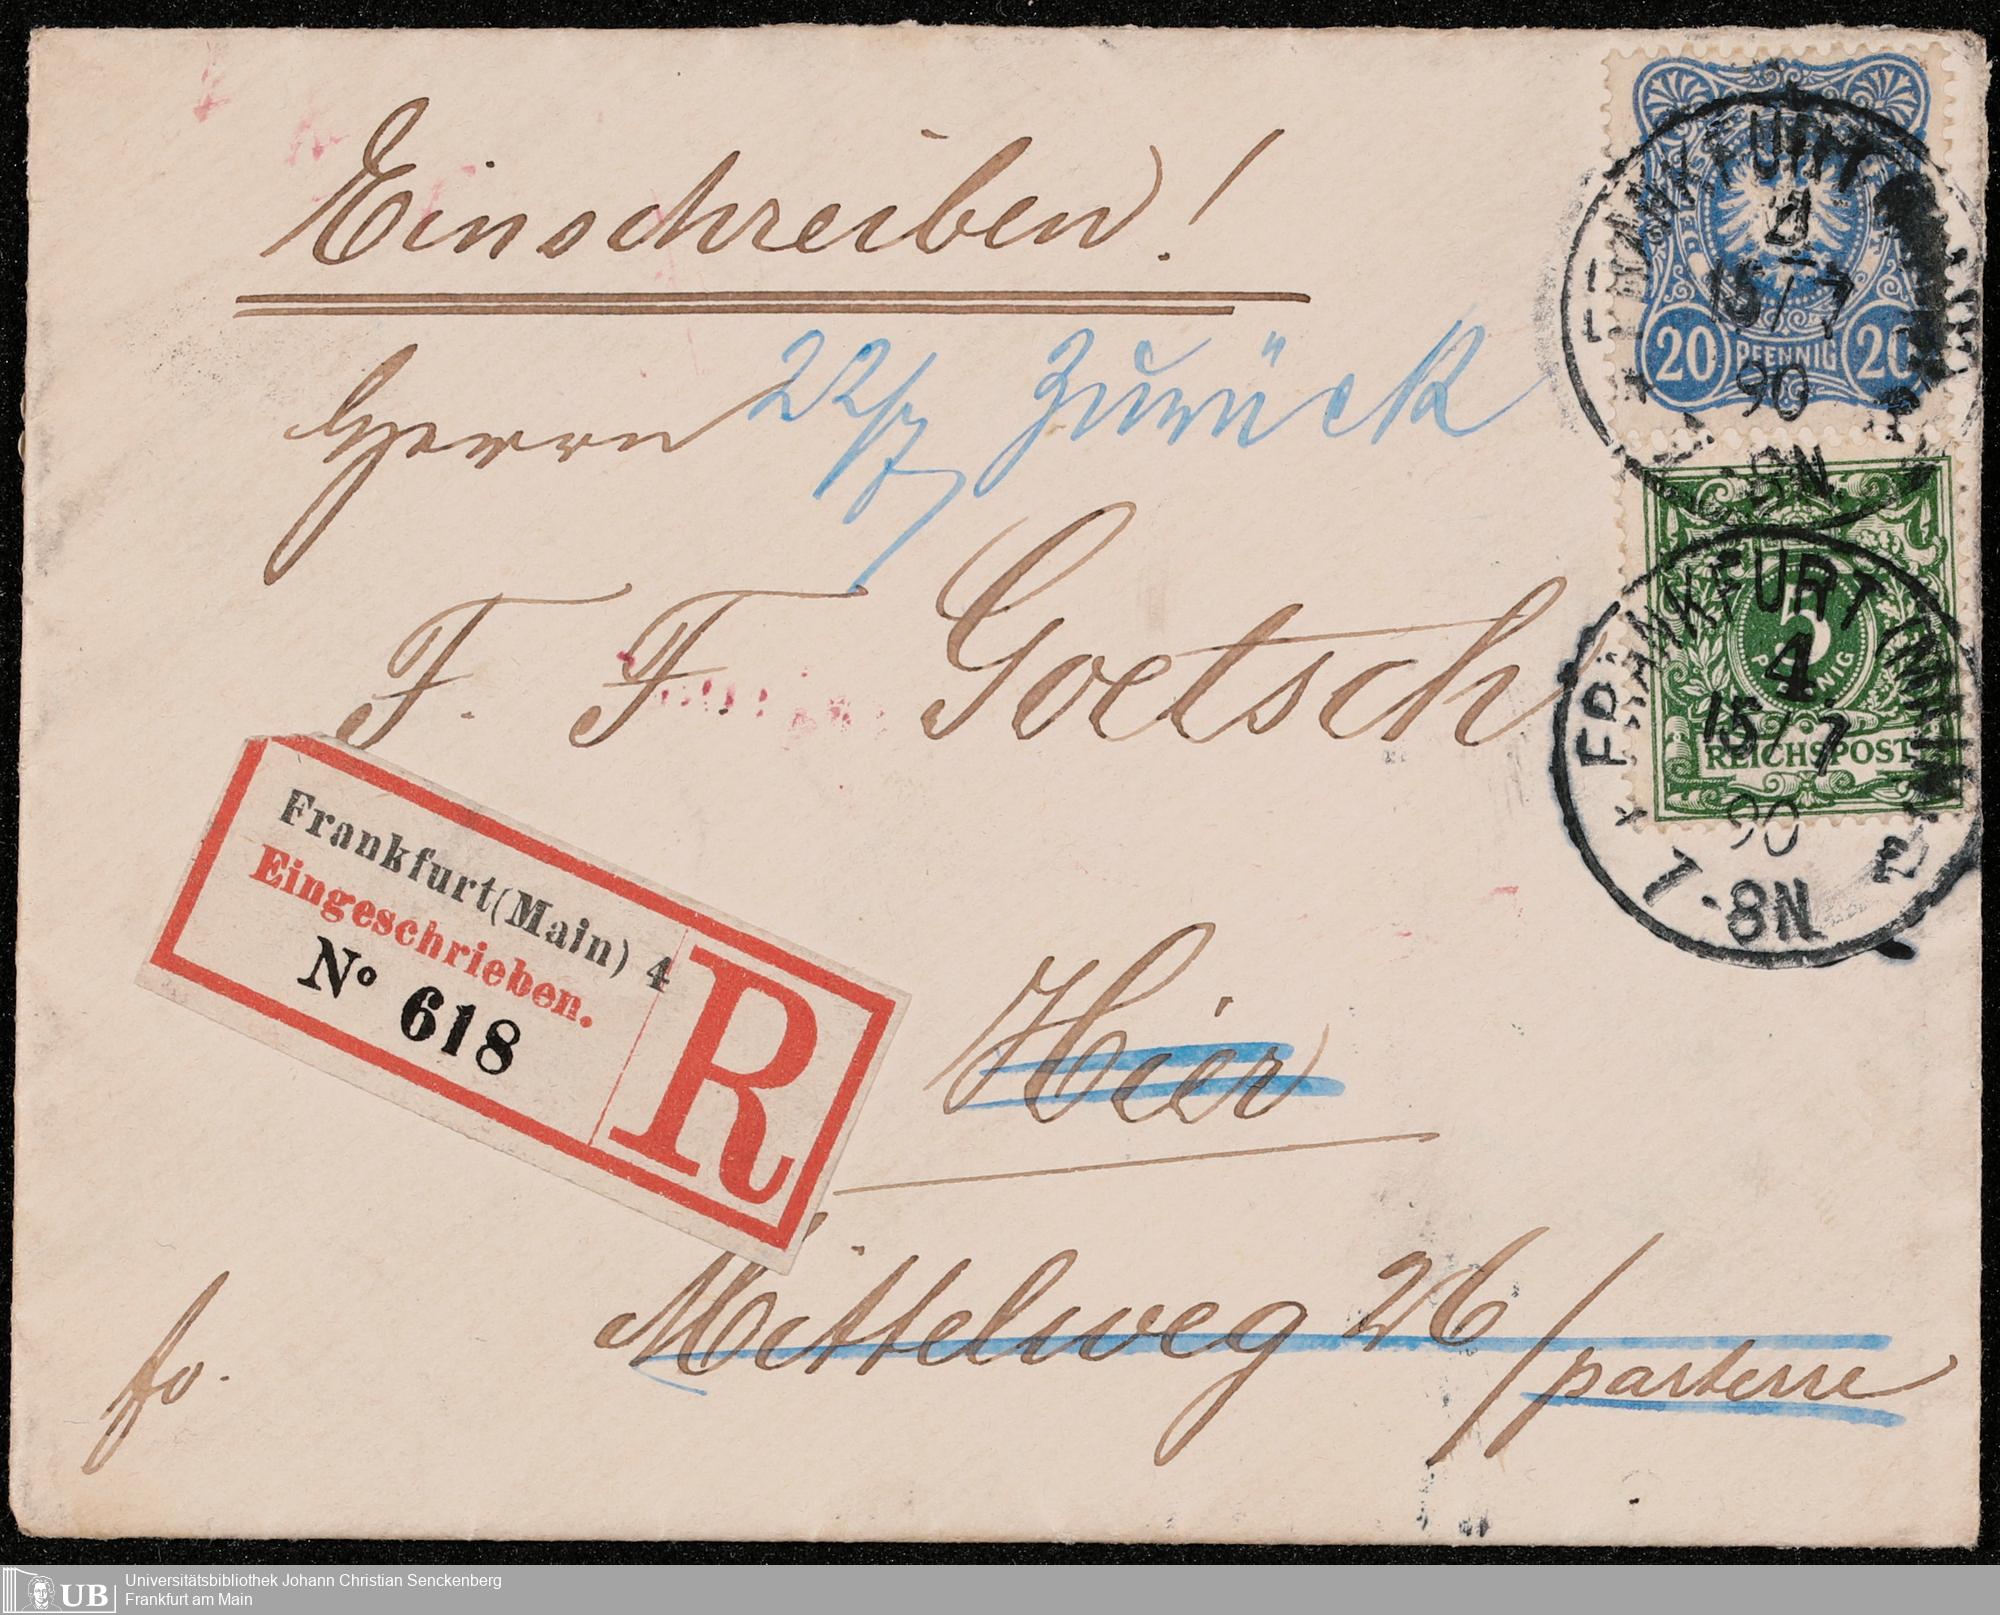 Einschreiben!
Herrn 22/7 Zurück
F. F. Goetsch
Frankfurt (Main) 4
Eingeschrieben.
No 618
R
Hier
Mittelweg 26/parterre
fo.
20 PFENNIG 20
FRANKFURT
4
15/7
90
8N
5
PFENNIG
REICHSPOST
FRANKFURT (MAIN)
4
15/7
90
7-8N
UB
Universitätsbibliothek Johann Christian Senckenberg
Frankfurt am Main